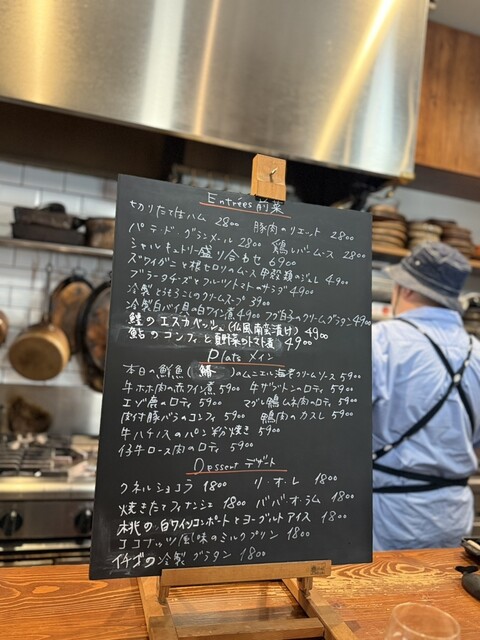 Entrées 前菜
切りたて生ハム 2800 豚肉のリエット 2800
パテ・ド・グランメール 2800 鶏レバームース 2800
シャルキュトリー盛り合わせ 6900
ズワイガニと根セロリのムース 甲殻類のジュレ 4900
ブラータチーズとフルーツトマトのサラダ 4900
冷製とうもろこしのクリームスープ 3900
冷製白バイ貝の白ワイン煮 4900 フグ白子のクリームグラタン 4900
鱧のエスカベッシュ(仏風南蛮漬け) 4900
鮎のコンフィと夏野菜のトマト煮 4900
Plats メイン
本日の鮮魚(鱸)のムニエル海老クリームソース 5900
牛ホホ肉の赤ワイン煮 5900 牛ザブトンのロティ 5900
エゾ鹿のロティ 5900 マグレ鴨ムネ肉のロティ 5900
骨付豚バラのコンフィ 5900 鴨肉のカスレ 5900
牛ハチノスのパン粉焼き 5900
仔牛ロース肉のロティ 5900
Dessert デザート
クネルショコラ 1800 リ・オ・レ 1800
焼きたてフィナンシェ 1800 ババ・オ・ラム 1800
桃の白ワインコンポートとヨーグルトアイス 1800
ココナッツ風味のミルクプリン 1800
イチゴの冷製グラタン 1800